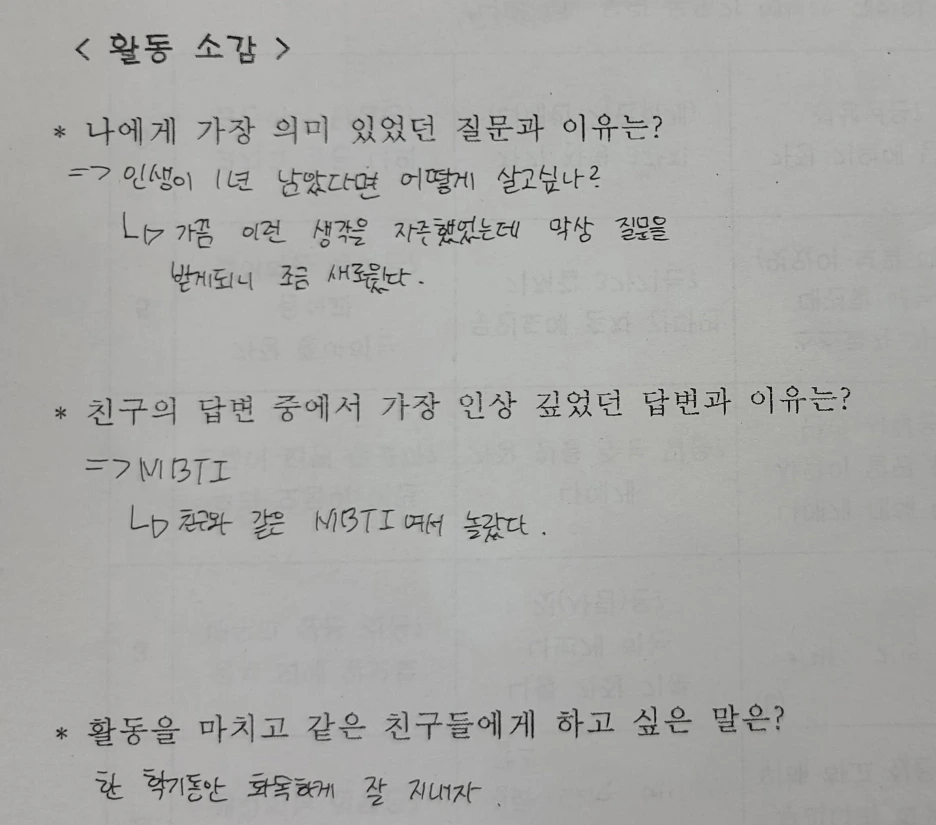 < 활동 소감 >
* 나에게 가장 의미 있었던 질문과 이유는?
=> 인생이 1년 남았다면 어떻게 살고싶나?
↳ 가끔 이런 생각을 자주했었는데 막상 질문을
받게되니 조금 새로웠다.
* 친구의 답변 중에서 가장 인상 깊었던 답변과 이유는?
=> MBTI
↳ 친구와 같은 MBTI여서 놀랐다.
* 활동을 마치고 같은 친구들에게 하고 싶은 말은?
한 학기동안 화목하게 잘 지내자.